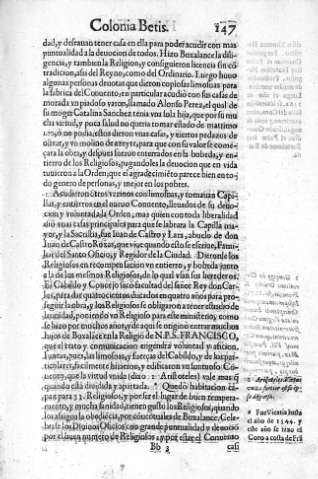 Colonia Betis. 147
dad, y deseauan tener casa en ella para poder acudir con mas
puntualidad a la deuocion de todos. Hizo Boxalance la dili-
gencia, y tambien la Religion, y consiguieron licencia sin co-
tradicion, assi del Reyno, como del Ordinario. Luego huuo
algunas personas deuotas que dieron copiosas limosnas para
la fabrica del Conuento, en particular acudio con sus casas de
morada vn piadoso varon, llamado Alonso Perez, el qual de
su muger Catalina Sanchez tenia vna sola hija, que por su mu
cha virtud, y poca salud no queria tomar estado de matrimo
nio, no poseia estos dieron vnas casas, y ciertos pedazos de
oliuar, y vn molino de azeyte, para que con su valor se comé-
çara la obra, y despues fueron enterrados en la bobeda, y en-
tierro de los Religiosos, pagandoles la deuocion que en vida
tuuieron a la Orden; que el agradecimiéto parece bien en to-
do genero de personas, y mejor en los pobres.
Acudieron otros vezinos con limosnas, y tomauan Capi-
llas, y entierros en el nueuo Conuento, lleuados de su deuo-
cion y voluntad a la Orden, mas quien con toda liberalidad
dio sus casas principales para que se labrara la Capilla ma-
yor, y la Sacristia, fue Iuan de Castro y Lara, abuelo de don
Iuan de Castro Rozas, que viue quando esto se escriue, Fami-
liar del Santo Oficio, y Regidor de la Ciudad. Dieronle los
Religiosos en recompensa vn entierro, y bobeda junto
a la de los mesmos Religiosos, de lo qual vsan sus herederos.
El Cabildo y Concejo sacò facultad del señor Rey don Car-
los, para dar quatrocientos ducados en quatro años para pro-
seguir la obra, y los Religiosos se obligaron a tener escuelas de
latinidad, poniendo vn Religioso para este ministerio, como
se hizo por muchos años, y de aqui se originò entrar muchos
hijos de Boxalance en la Religion de N.P.S. FRANCISCO,
que el trato y comunicacion engendra voluntad y aficion.
Iuntas, pues, las limosnas, y fuerças del Cabildo, y de los par-
ticulares, facilmente hizieron, y edificaron vn suntuoso Cô-
uento, que la virtud vnida (dixo 2 Aristoteles) vale mas q
quando està diuidida y apartada. * Quedò habitacion ca-
paz para 33. Religiosos, y por ser el lugar de buen tempera-
mento, y mucha sanidad, tienen gusto los Religiosos, quando
los ocupa la obediencia, por conuentuales de Boxalance. Cele-
branse los Diuinos Oficios con grande puntualidad y deuocio
por el mucho numero de Religiosos, y por estar el Conuento
Bb 2 casi
2 Aristoteles
* Fue Vicaria hasta
el año de 1544. y
este año se hizo el
Coro a costa de Frà